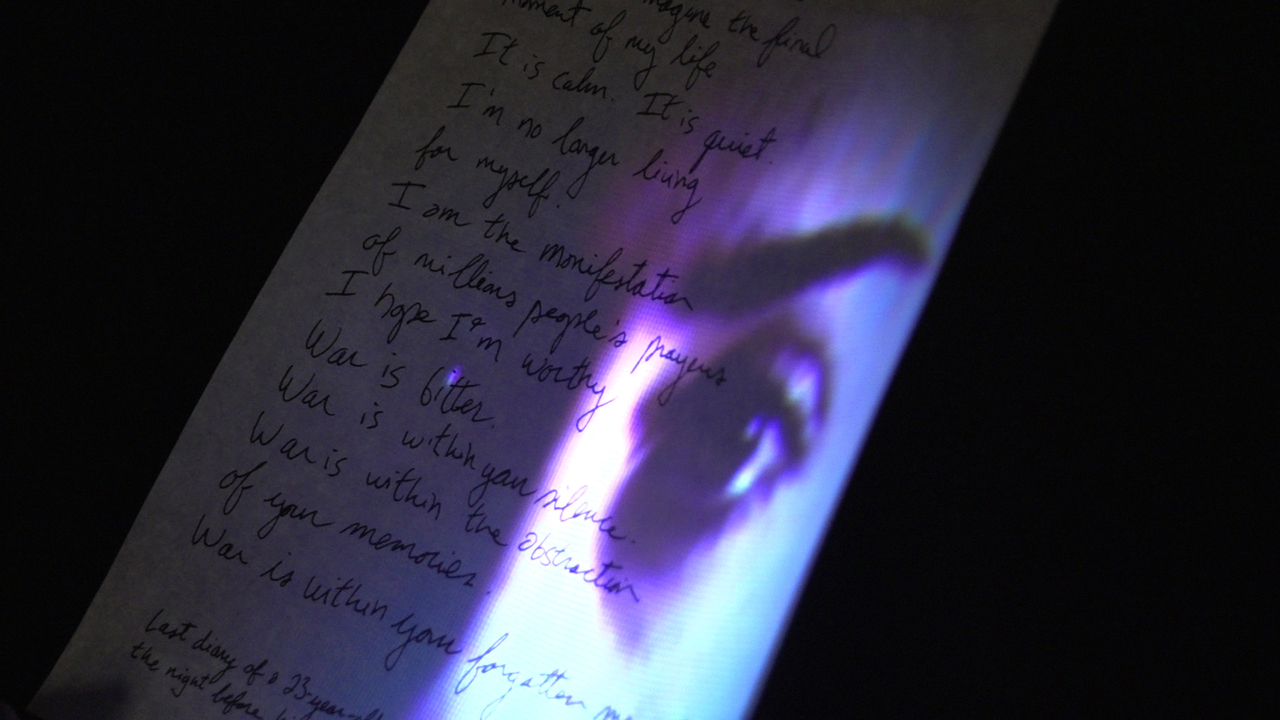 imagine the final
moment of my life
It is calm. It is quiet.
I'm no longer living
for myself.
I am the manifestation
of millions people's prayers
I hope I'm worthy
War is bitter.
War is within your silence.
War is within the abstraction
of your memories.
War is within your forgotten
Last diary of a 23-year-old
the night before